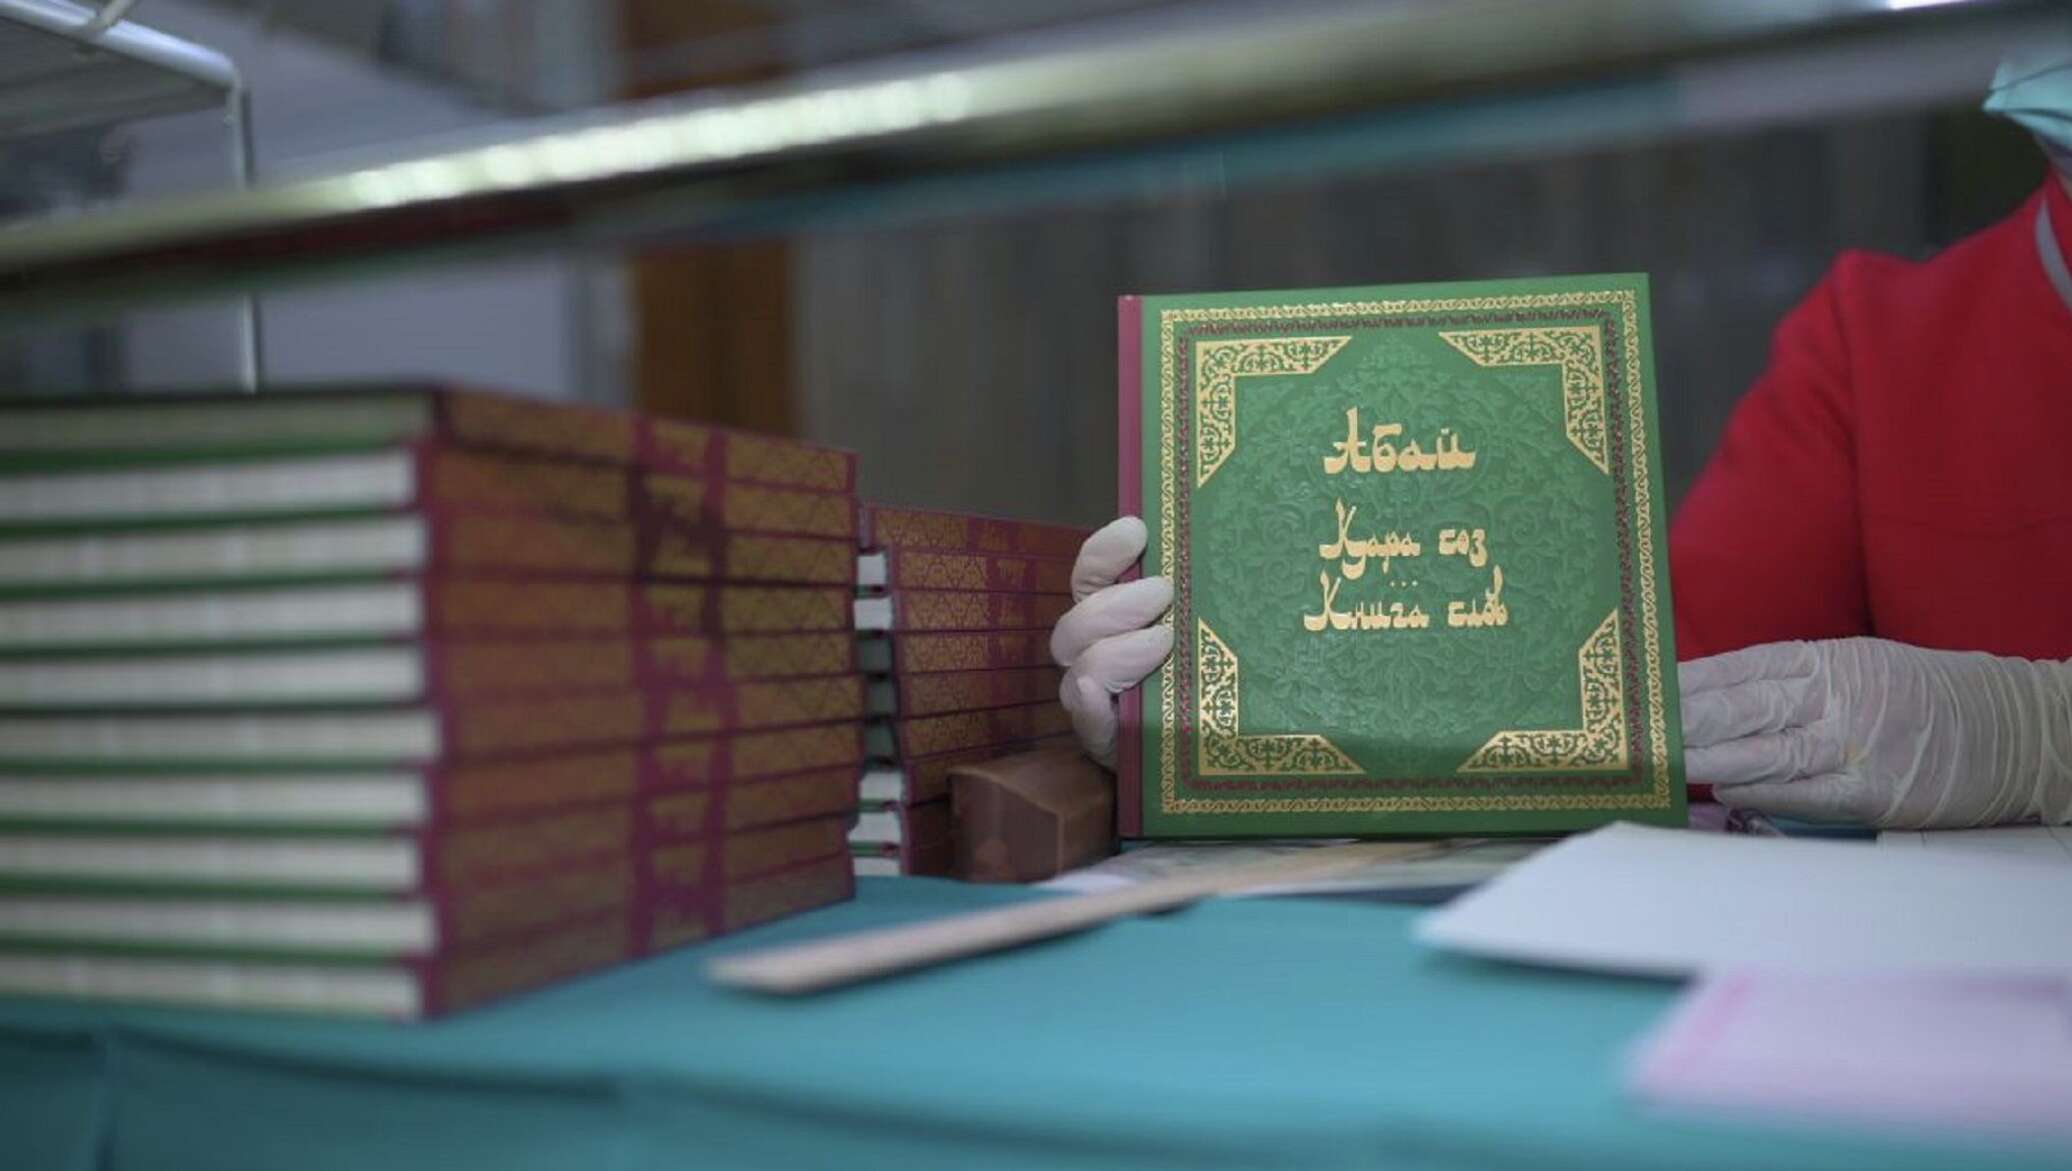 Абай
Қара сөз
...
Книга слов